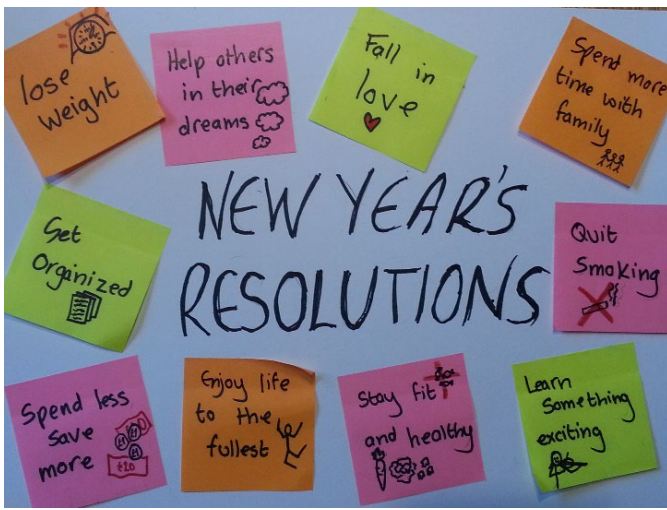 lose
weight
Help others
in their
dreams
Fall in
love
Spend more
time with
family
NEW YEAR'S
RESOLUTIONS
Get
Organized
Quit
Smoking
Spend less
save
more
£20
Enjoy life
to the
fullest
Stay fit
and healthy
Learn
Something
exciting